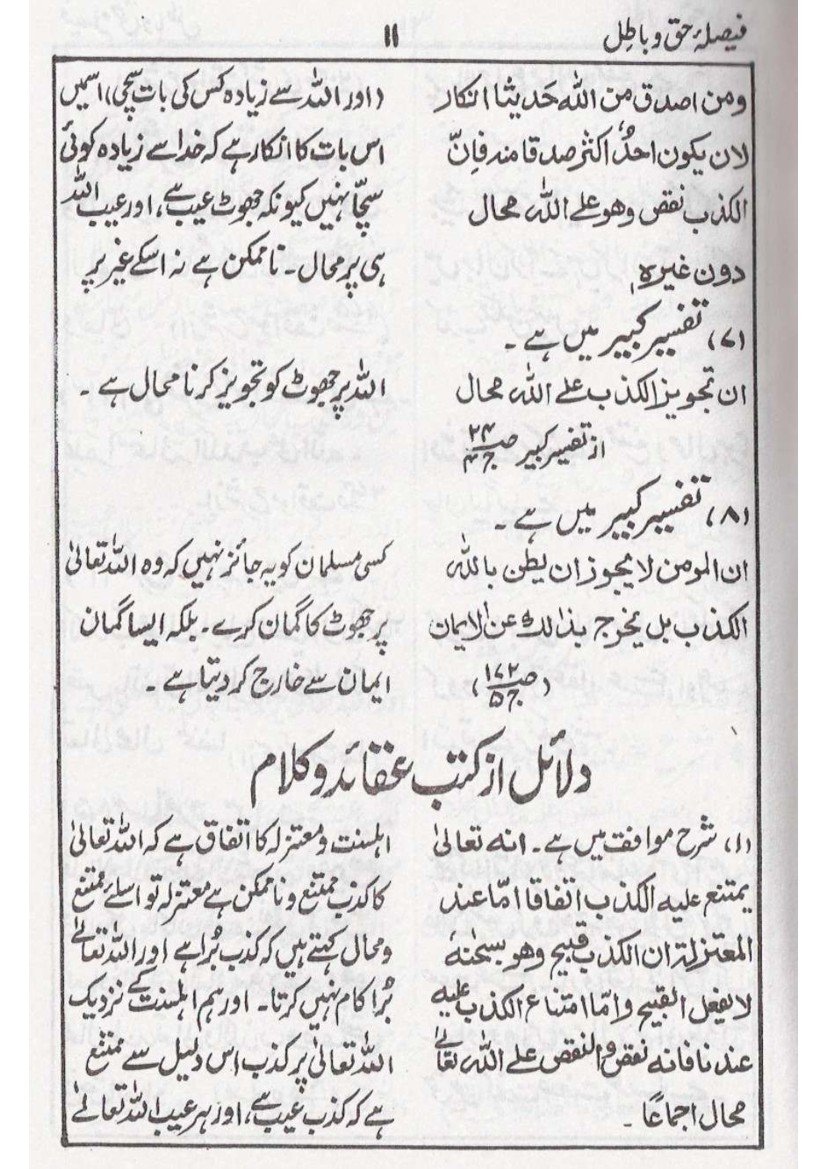 فیصلۂ حق و باطل
۱۱
ومن اصدق من اللہ حدیثا انکار
لان یکون احدٌ اکثر صدقا منہ فانّ
الکذب نقص وھو علے اللہ محال
دون غیرہ
(اور اللہ سے زیادہ کس کی بات سچی) اسمیں
اس بات کا انکار ہے کہ خدا سے زیادہ کوئی
سچّا نہیں کیونکہ جھوٹ عیب ہے، اور عیب اللہ
ہی پر محال۔ ناممکن ہے نہ اسکے غیر پر
(۷) تفسیر کبیر میں ہے۔
ان تجویز الکذب علے اللہ محال
از تفسیر کبیر ص۲۴ ج۴
اللہ پر جھوٹ کو تجویز کرنا محال ہے۔
(۸) تفسیر کبیر میں ہے۔
ان المومن لا یجوز ان یظن باللہ
الکذب بل یخرج بذالک عن الایمان
(ص۱۷۲ ج۵)
کسی مسلمان کو یہ جائز نہیں کہ وہ اللہ تعالیٰ
پر جھوٹ کا گمان کرے۔ بلکہ ایسا گمان
ایمان سے خارج کر دیتا ہے۔
دلائل از کتب عقائد و کلام
(۱) شرح مواقف میں ہے۔ انہ تعالیٰ
یمتنع علیہ الکذب اتفاقا امّا عند
المعتزلۃ ان الکذب قبیح وھو سبحنہ
لا یفعل القبیح وامّا امتناع الکذب علیہ
عند نا فانہ نقص والنقص علے اللہ تعالےٰ
محال اجماعًا۔
اہلسنت و معتزلہ کا اتفاق ہے کہ اللہ تعالیٰ
کا کذب ممتنع و ناممکن ہے معتزلہ تو اسلئے ممتنع
و محال کہتے ہیں کہ کذب بُرا ہے اور اللہ تعالےٰ
بُرا کام نہیں کرتا۔ اور ہم اہلسنت کے نزدیک
اللہ تعالیٰ پر کذب اس دلیل سے ممتنع
ہے کہ کذب عیب ہے، اور ہر عیب اللہ تعالےٰ